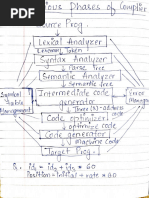 Various Phases of Compiler
Source Prog.
Lexical Analyzer
Token
Syntax Analyzer
Parse tree
Semantic Analyzer
Semantic tree
Symbol
Table
Management
Intermediate code
generator
Error
Manage
Three (3)-address
code
Code optimizer
optimize
code
Code generator
Machine code
Target Prog.
Position = initial + rate * 60